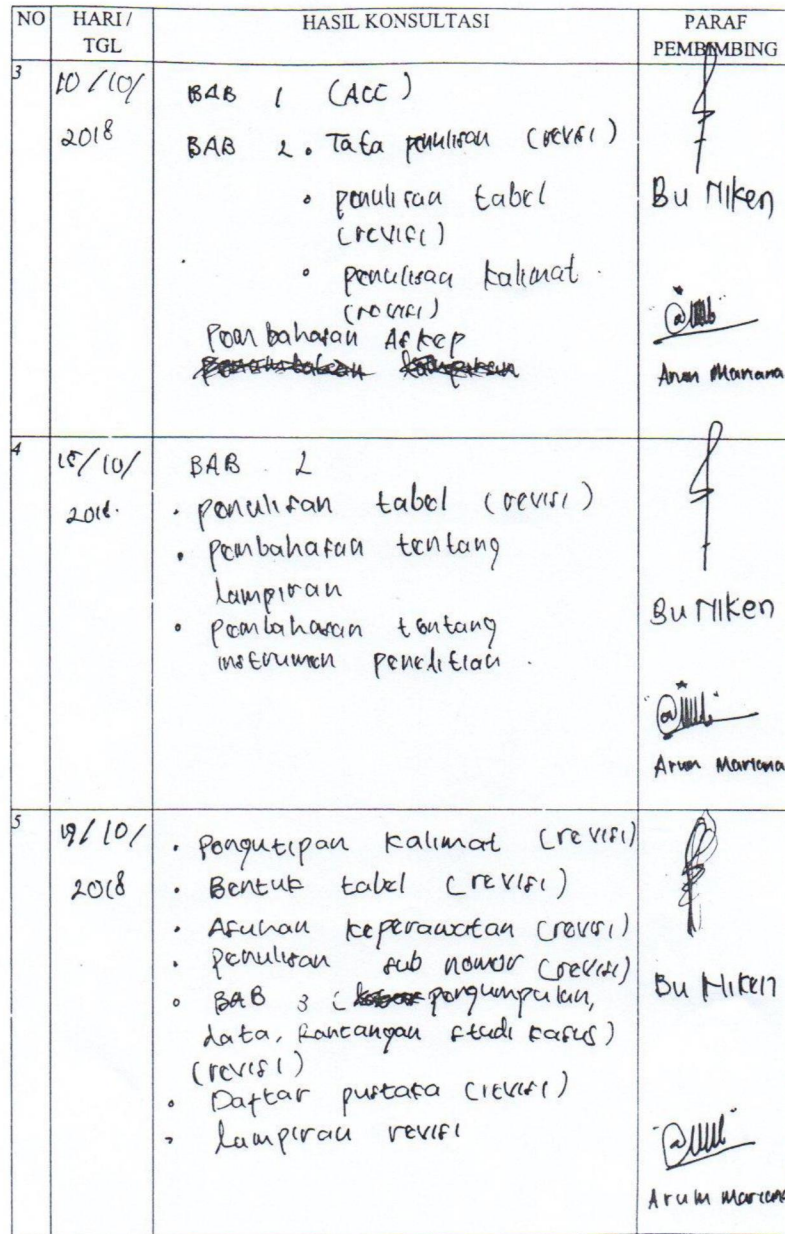 NO HARI / TGL HASIL KONSULTASI PARAF PEMBIMBING
3 10/10/ 2018
BAB 1 (ACC)
BAB 2 • Tata penulisan (revisi)
• penulisan tabel
(revisi)
• penulisan kalimat
(revisi)
Pembahasan Askep
Bu Niken
Arum Mariana
4 15/10/ 2018
BAB 2
• penulisan tabel (revisi)
• pembahasan tentang
lampiran
• pembahasan tentang
instrumen penelitian
Bu Niken
Arum Mariana
5 19/10/ 2018
• Pengutipan kalimat (revisi)
• Bentuk tabel (revisi)
• Asuhan keperawatan (revisi)
• penulisan sub nomor (revisi)
• BAB 3 (pengumpulan,
data, Rancangan studi kasus)
(revisi)
• Daftar pustaka (revisi)
• lampiran revisi
Bu Niken
Arum Mariana